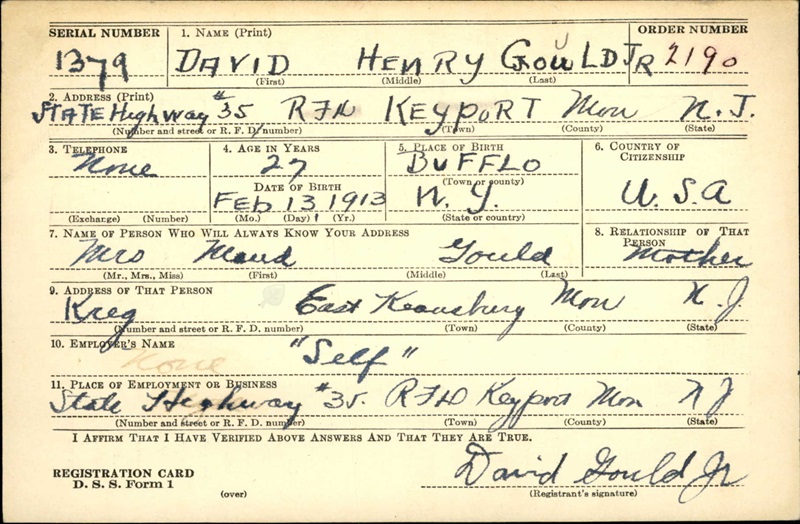 SERIAL NUMBER 1. NAME (Print) ORDER NUMBER
1379 DAVID HENRY GOULD JR 2190
(First) (Middle) (Last)
2. ADDRESS (Print)
STATE Highway #35 RFD KEYPORT Mon N.J.
(Number and street or R. F. D. number) (Town) (County) (State)
3. TELEPHONE 4. AGE IN YEARS 5. PLACE OF BIRTH 6. COUNTRY OF CITIZENSHIP
None 27 BUFFLO
(Town or county)
DATE OF BIRTH
FEB 13 1913 N.Y. U.S.A
(Exchange) (Number) (Mo.) (Day) (Yr.) (State or country)
7. NAME OF PERSON WHO WILL ALWAYS KNOW YOUR ADDRESS 8. RELATIONSHIP OF THAT PERSON
Mrs Maud Gould Mother
(Mr., Mrs., Miss) (First) (Middle) (Last)
9. ADDRESS OF THAT PERSON
East Keansburg Mon N.J.
(Number and street or R. F. D. number) (Town) (County) (State)
10. EMPLOYER'S NAME
None "Self"
11. PLACE OF EMPLOYMENT OR BUSINESS
State Highway #35 RFD Keyport Mon NJ
(Number and street or R. F. D. number) (Town) (County) (State)
I AFFIRM THAT I HAVE VERIFIED ABOVE ANSWERS AND THAT THEY ARE TRUE.
REGISTRATION CARD
D. S. S. Form 1 David Gould Jr
(over) (Registrant's signature)